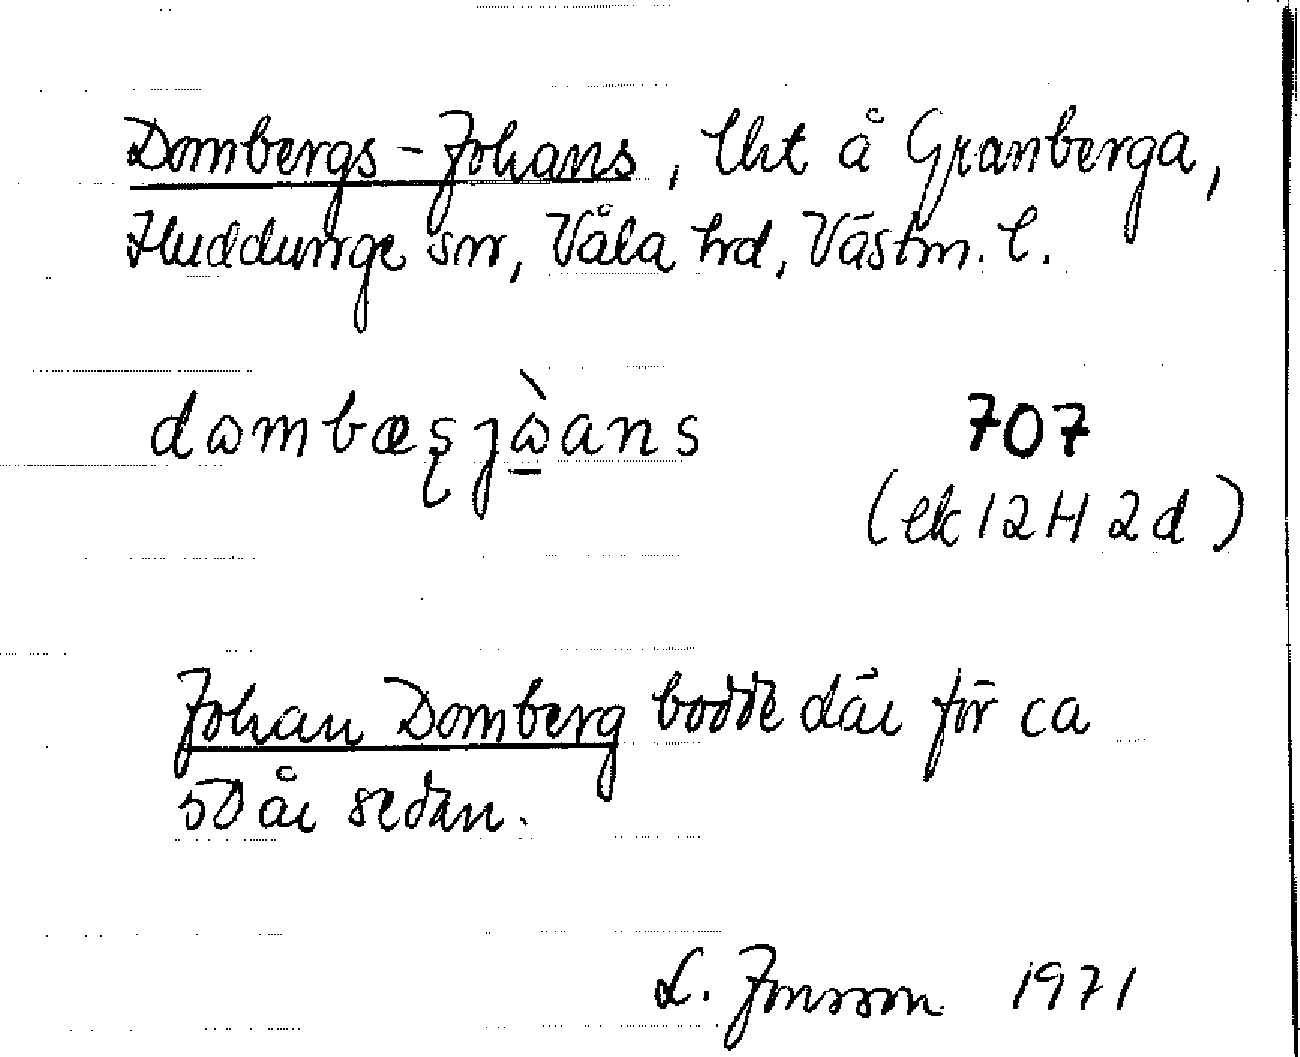 Dombergs-Johans, lht å Granberga,
Huddunge sn, Våla hd, Västm. l.
dωmbæʂjὼans
707
(ek 12H 2d)
Johan Domberg bodde där för ca
50 år sedan.
L. Jonsson 1971